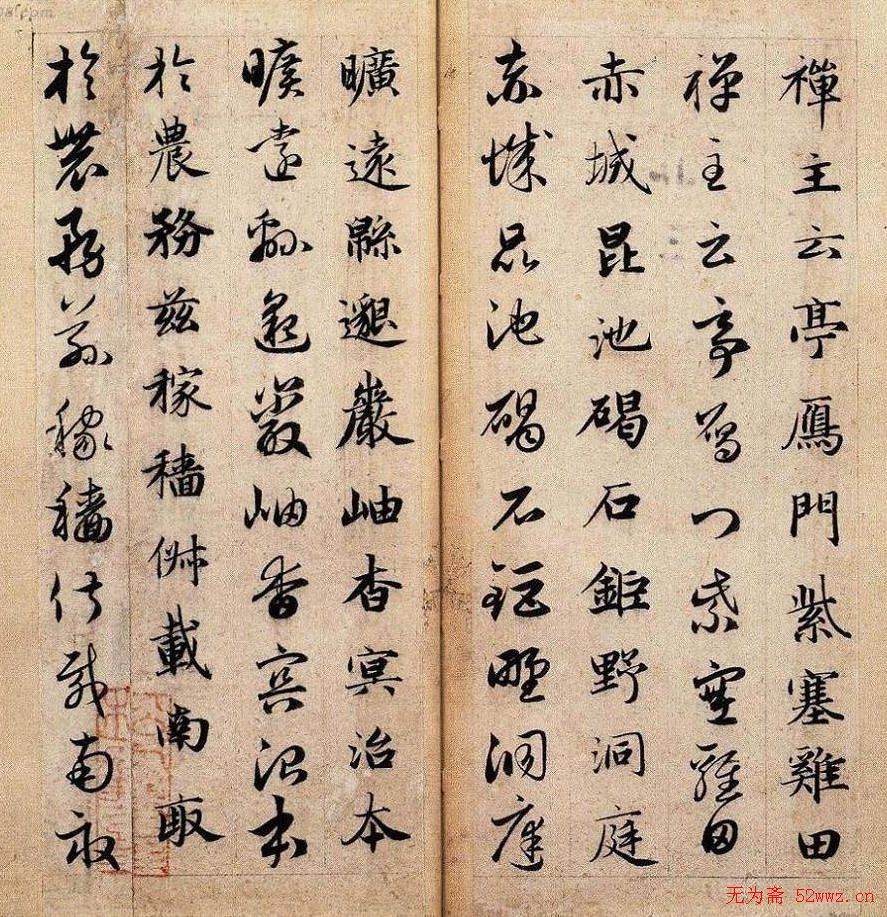 禪主云亭鴈門紫塞雞田
禪主云亭鴈門紫塞雞田
赤城昆池碣石鉅野洞庭
赤城昆池碣石鉅野洞庭
曠遠緜邈巖岫杳冥治本
曠遠緜邈巖岫杳冥治本
於農務茲稼穡俶載南畝
於農務茲稼穡俶載南畝
无为斋 52wwz.cn